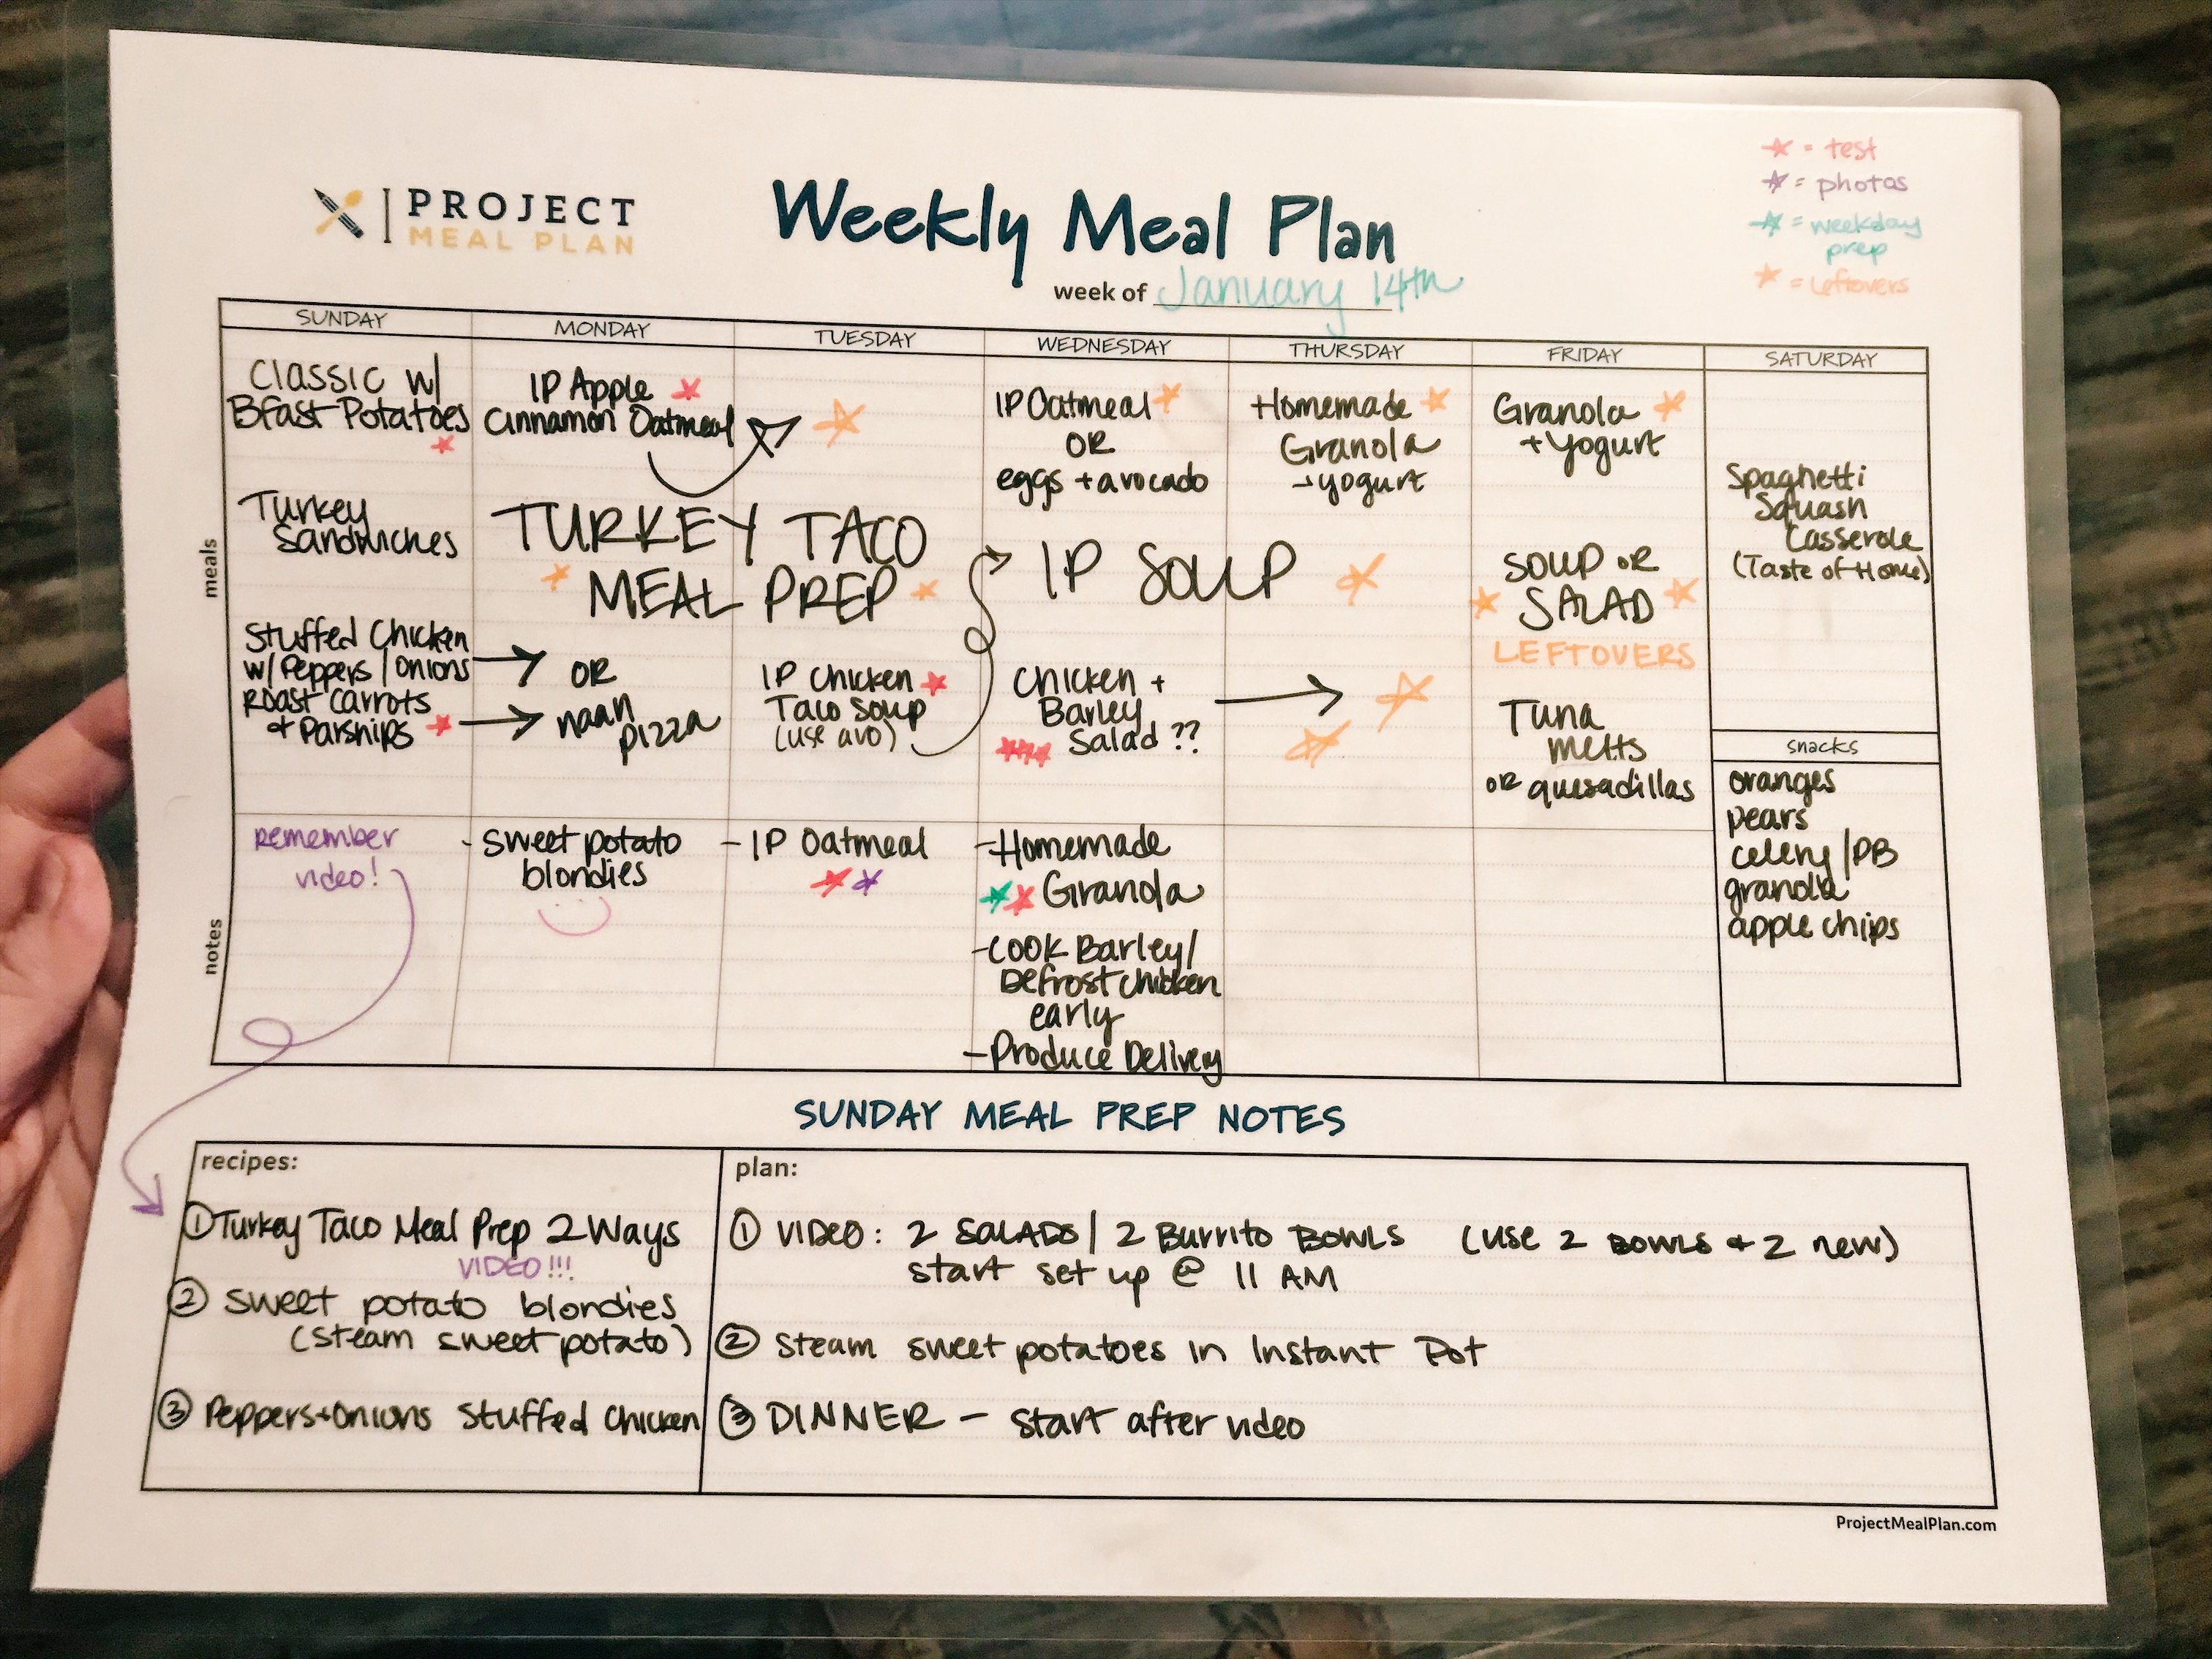 PROJECT
MEAL PLAN
Weekly Meal Plan
week of January 14th
= test
= photos
= weekday
prep
= leftovers
SUNDAY
MONDAY
TUESDAY
WEDNESDAY
THURSDAY
FRIDAY
SATURDAY
meals
Classic w/
Bfast Potatoes
Turkey
Sandwiches
Stuffed Chicken
w/ Peppers / Onions
Roast Carrots
+ Parsnips
IP Apple
Cinnamon Oatmeal
TURKEY TACO
MEAL PREP
OR
naan
pizza
IP Chicken
Taco Soup
(use avo)
IP Oatmeal
OR
eggs + avocado
IP SOUP
Chicken +
Barley
Salad ??
Homemade
Granola
+ yogurt
Granola
+ Yogurt
SOUP OR
SALAD
LEFTOVERS
Tuna
melts
OR quesadillas
Spaghetti
Squash
Casserole
(Taste of Home)
snacks
oranges
pears
celery / PB
granola
apple chips
notes
remember
video!
- sweet potato
blondies
- IP Oatmeal
- Homemade
Granola
- Cook Barley /
Defrost chicken
early
- Produce Delivery
SUNDAY MEAL PREP NOTES
recipes:
① Turkey Taco Meal Prep 2 Ways
VIDEO!!!
② sweet potato blondies
(steam sweet potato)
③ Peppers + Onions Stuffed Chicken
plan:
① VIDEO: 2 SALADS / 2 Burrito BOWLS (use 2 BOWLS + 2 new)
start set up @ 11 AM
② Steam sweet potatoes in Instant Pot
③ DINNER - start after video
ProjectMealPlan.com